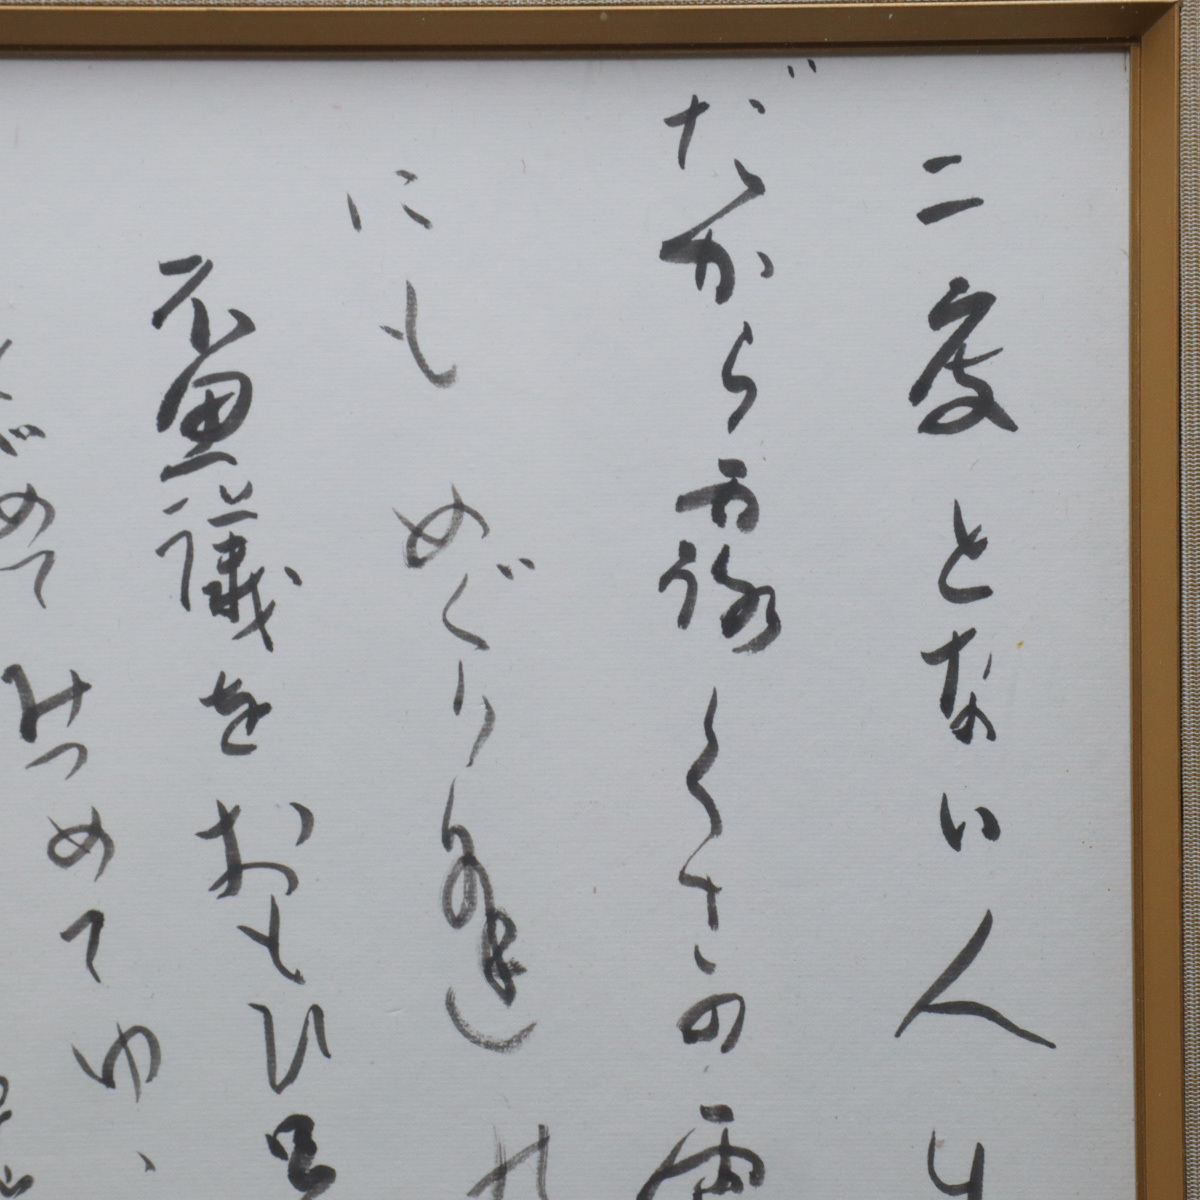 二度とない人
だから露くさの
にもめぐり逢
不思議をおもひ
めてみつめてゆ